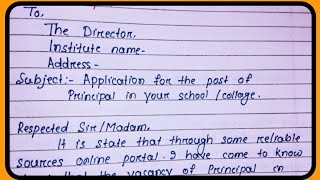 To,
The Director,
Institute name-
Address-
Subject:- Application for the post of
Principal in your school/collage.
Respected Sir/Madam,
It is state that through some relriable
sources online portal. I have come to know
that the vacancy of Principal in